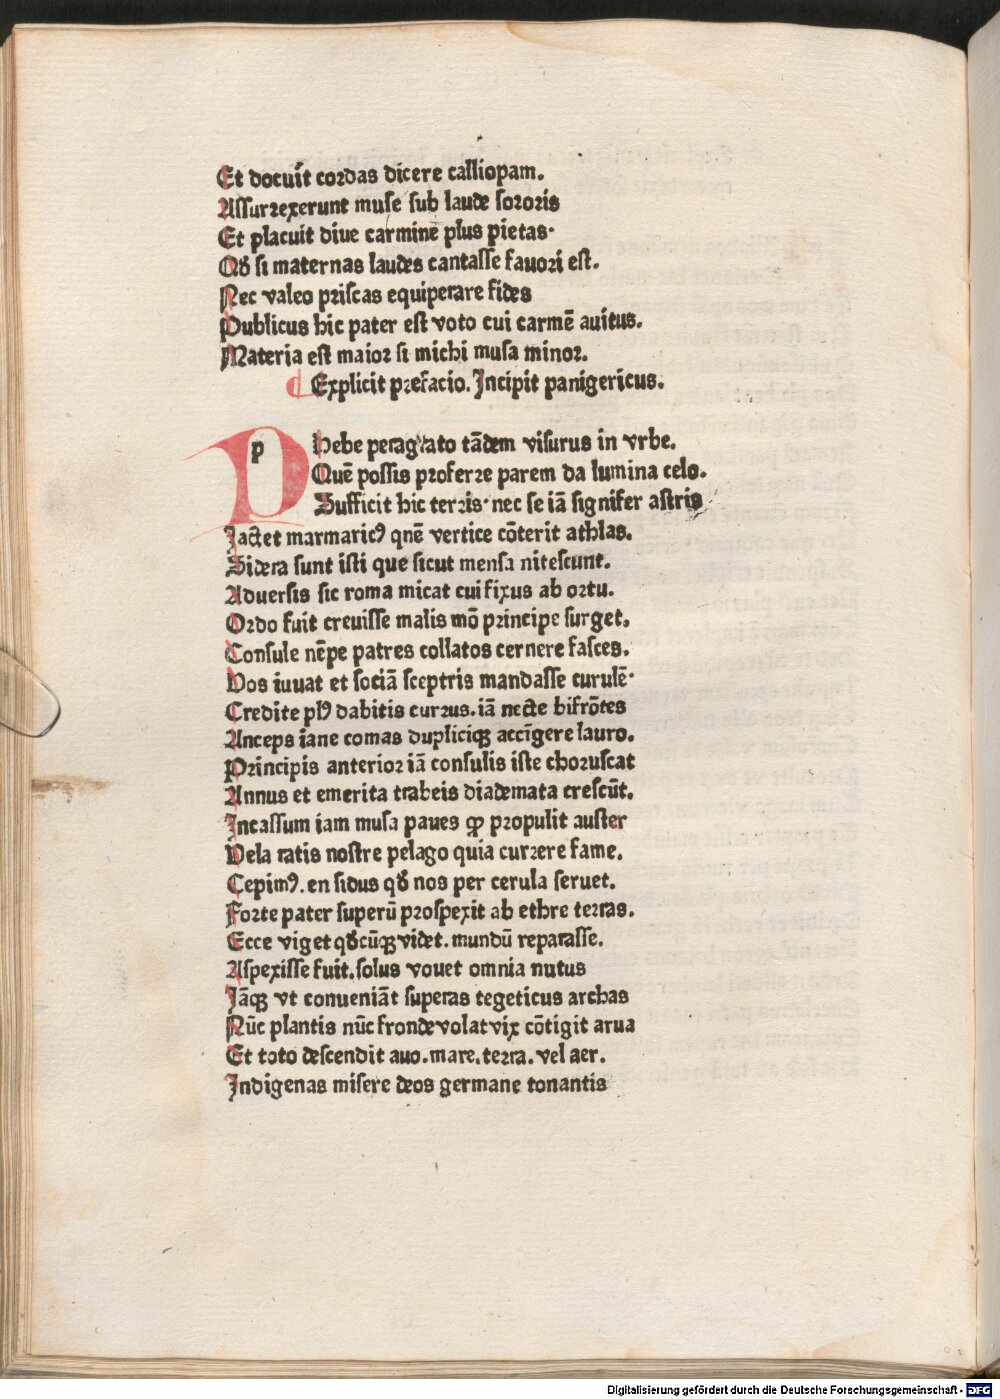 Et docuit cordas dicere calliopam.
Assurrexerunt muse sub laude sororis
Et placuit diue carmine plus pietas·
Qđ si maternas laudes cantasse fauori est.
Nec valeo priscas equiperare fides
Publicus hic pater est voto cui carmē auitus.
Materia est maior si michi musa minor.
Explicit prefacio. Incipit panigericus.
p Hebe peragrato tādem visurus in vrbe.
Quē possis proferre parem da lumina celo.
Sufficit hic terris· nec se iā signifer astris
Jactet marmaricꝰ quē vertice cōterit athlas.
Sidera sunt isti que sicut mensa nitescunt.
Aduersis sic roma micat cui fixus ab ortu.
Ordo fuit creuisse malis mō principe surget,
Consule nēpe patres collatos cernere fasces.
Vos iuuat et sociā sceptris mandasse curulē·
Credite plꝰ dabitis currus. iā necte bifrōtes
Anceps iane comas dupliciqꝫ accīgere lauro.
Principis anterior iā consulis iste choruscat
Annus et emerita trabeis diademata crescūt.
Incassum iam musa paues ꝙ propulit auster
Vela ratis nostre pelago quia currere fame.
Cepimꝰ. en sidus qđ nos per cerula seruet.
Forte pater superū prospexit ab ethre terras.
Ecce viget qđcūqꝫ videt. mundū reparasse.
Aspexisse fuit. solus vouet omnia nutus
Jāqꝫ vt conueniāt superas tegeticus archas
Nūc plantis nūc fronde volat vix cōtigit arua
Et toto descendit auo. mare. terra. vel aer.
Indigenas misere deos germane tonantis
Digitalisierung gefördert durch die Deutsche Forschungsgemeinschaft - DFG